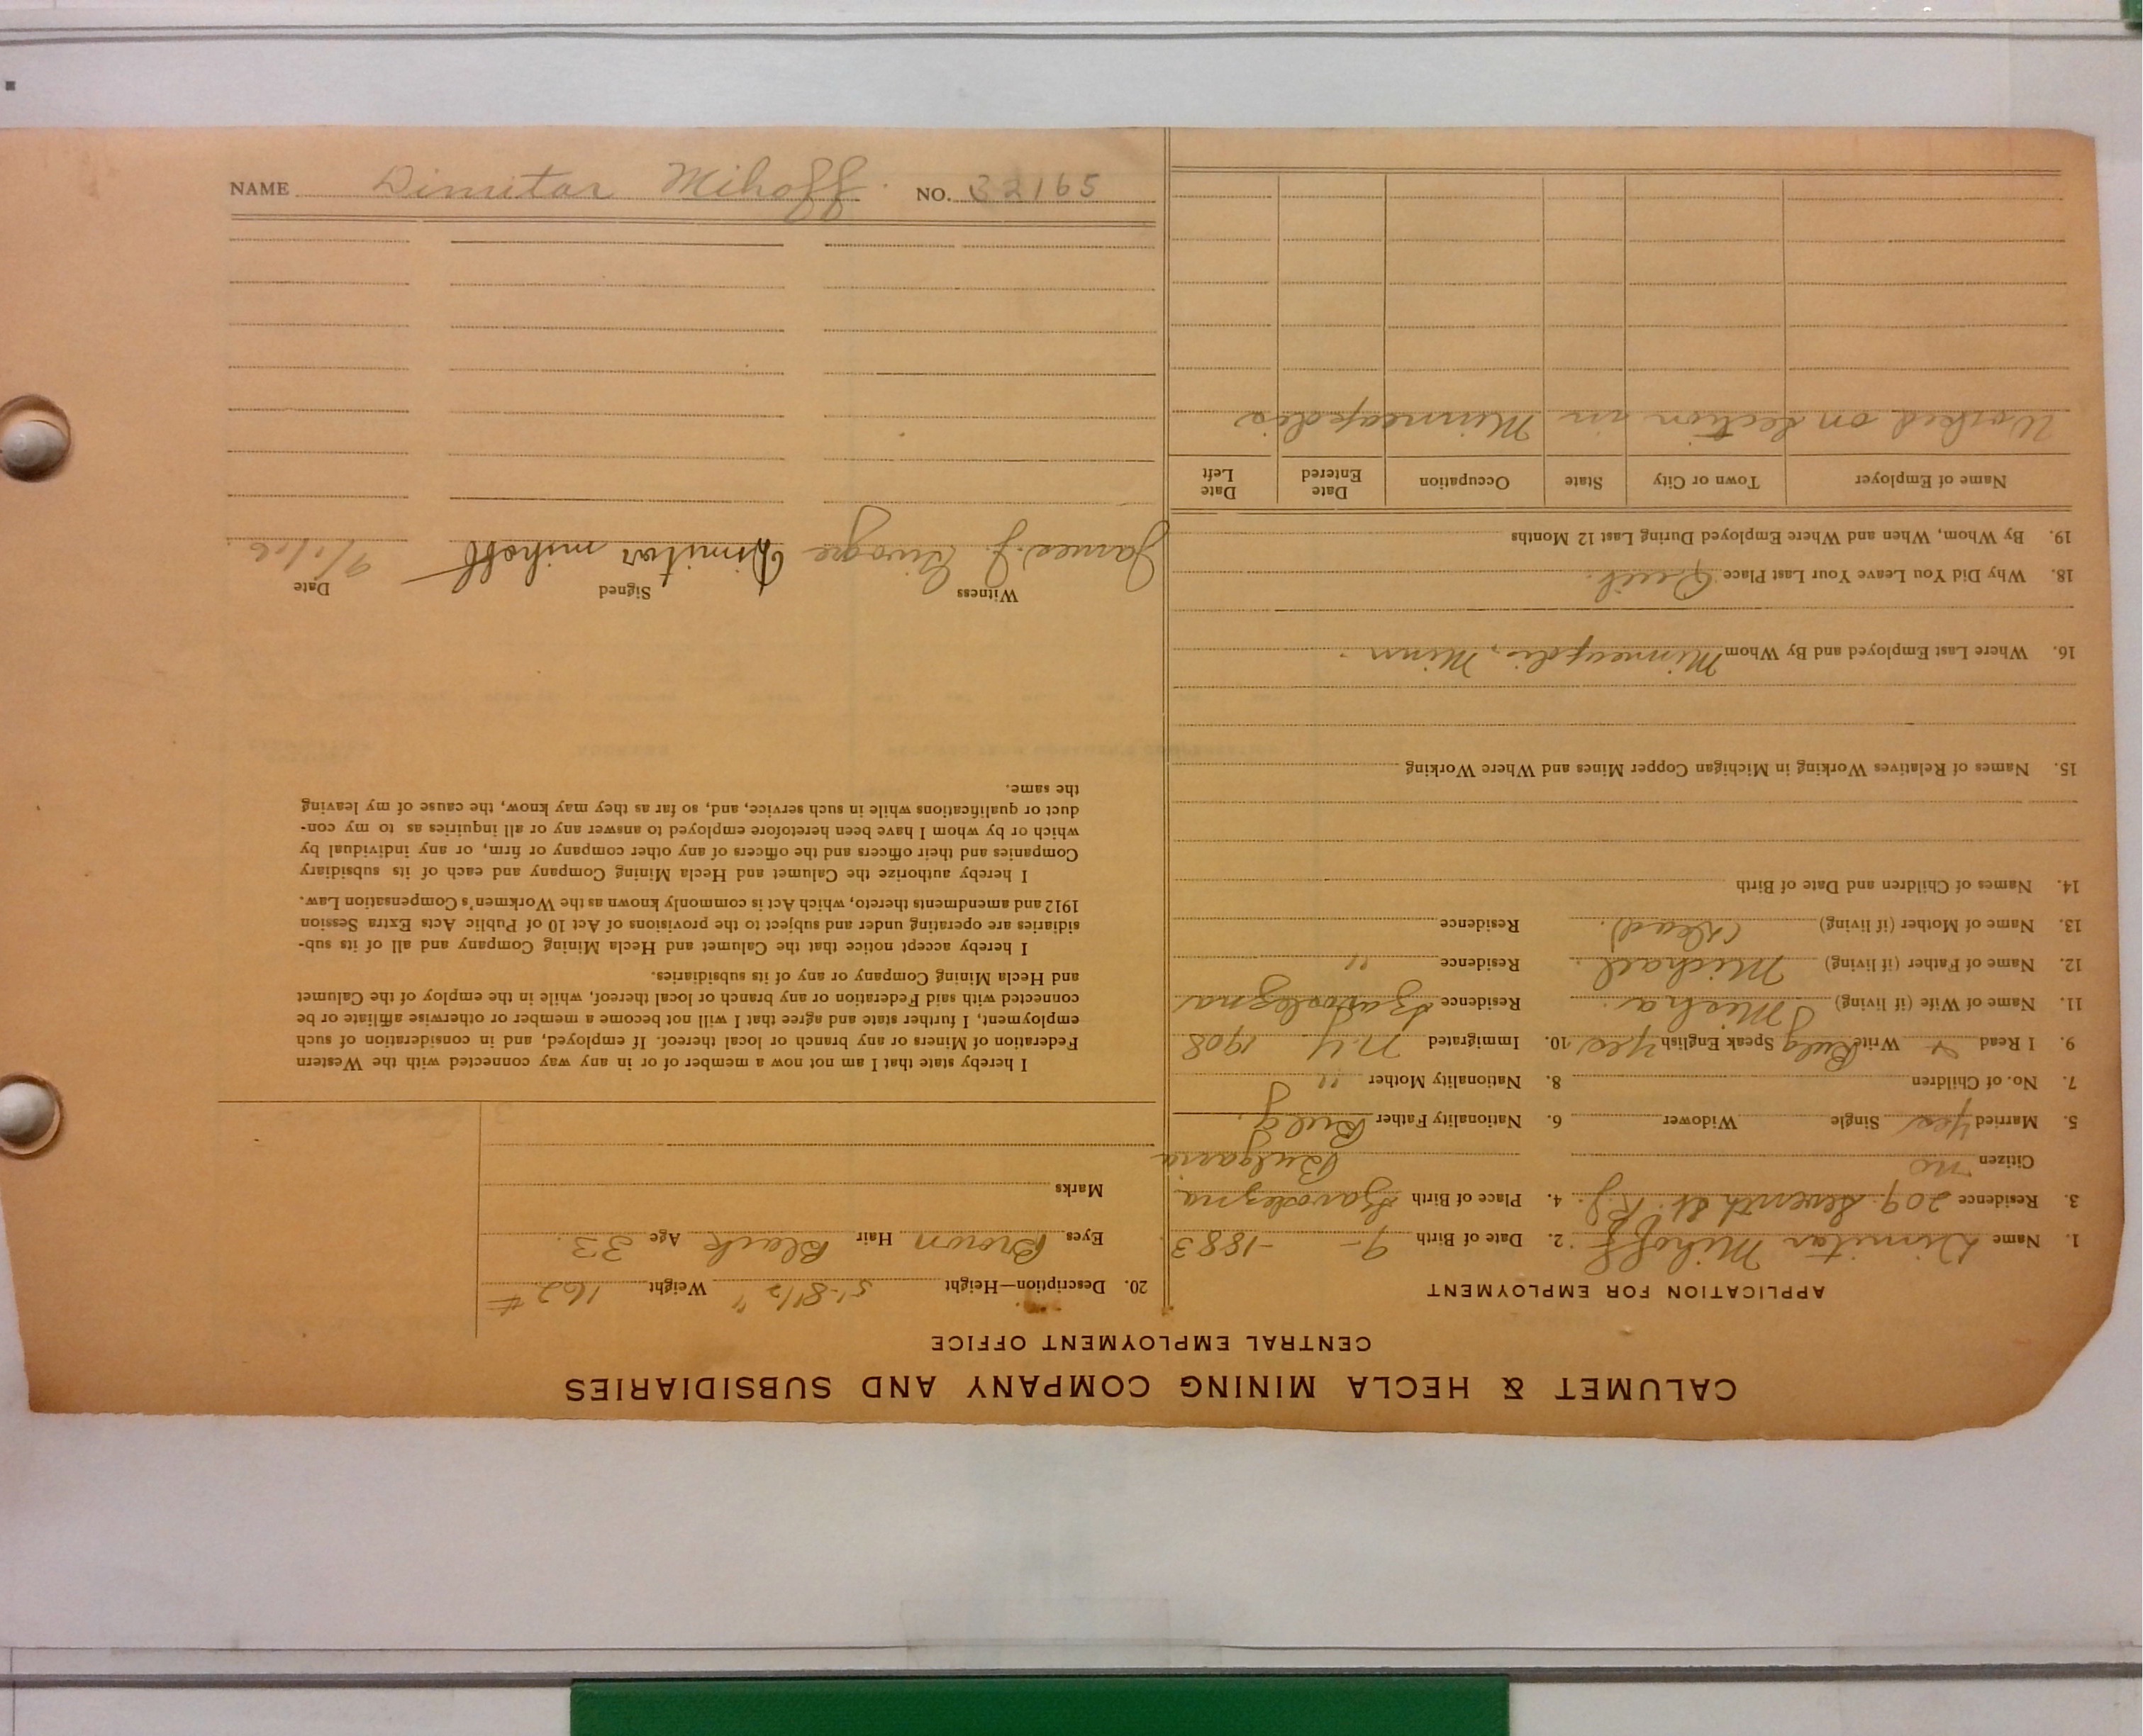 NAME Dimitar Mihoff NO. 32165
CALUMET & HECLA MINING COMPANY AND SUBSIDIARIES
CENTRAL EMPLOYMENT OFFICE
APPLICATION FOR EMPLOYMENT
1. Name Dimitar Mihoff. 2. Date of Birth 9- -1883
3. Residence 209 Seventh St. 4. Place of Birth
Citizen no Bulgaria
5. Married Yes Single Widower 6. Nationality Father Bulg.
7. No. of Children 8. Nationality Mother "
9. I Read + Write Bulg Speak English Yes 10. Immigrated N.Y 1908
11. Name of Wife (if living) Residence
12. Name of Father (if living) Michael. Residence "
13. Name of Mother (if living) (Dead). Residence
14. Names of Children and Date of Birth
15. Names of Relatives Working in Michigan Copper Mines and Where Working
16. Where Last Employed and By Whom Minneapolis, Minn.
18. Why Did You Leave Your Last Place Quit.
19. By Whom, When and Where Employed During Last 12 Months
Name of Employer Town or City State Occupation Date Entered Date Left
Worked on section in Minneapolis
20. Description—Height 5'-8 1/2" Weight 162 #
Eyes Brown Hair Black Age 33.
Marks
I hereby state that I am not now a member of or in any way connected with the Western
Federation of Miners or any branch or local thereof. If employed, and in consideration of such
employment, I further state and agree that I will not become a member or otherwise affiliate or be
connected with said Federation or any branch or local thereof, while in the employ of the Calumet
and Hecla Mining Company or any of its subsidiaries.
I hereby accept notice that the Calumet and Hecla Mining Company and all of its sub-
sidiaries are operating under and subject to the provisions of Act 10 of Public Acts Extra Session
1912 and amendments thereto, which Act is commonly known as the Workmen's Compensation Law.
I hereby authorize the Calumet and Hecla Mining Company and each of its subsidiary
Companies and their officers and the officers of any other company or firm, or any individual by
which or by whom I have been heretofore employed to answer any or all inquiries as to my con-
duct or qualifications while in such service, and, so far as they may know, the cause of my leaving
the same.
Witness Signed Date
James J. Dimitar mihoff 9/1/16.